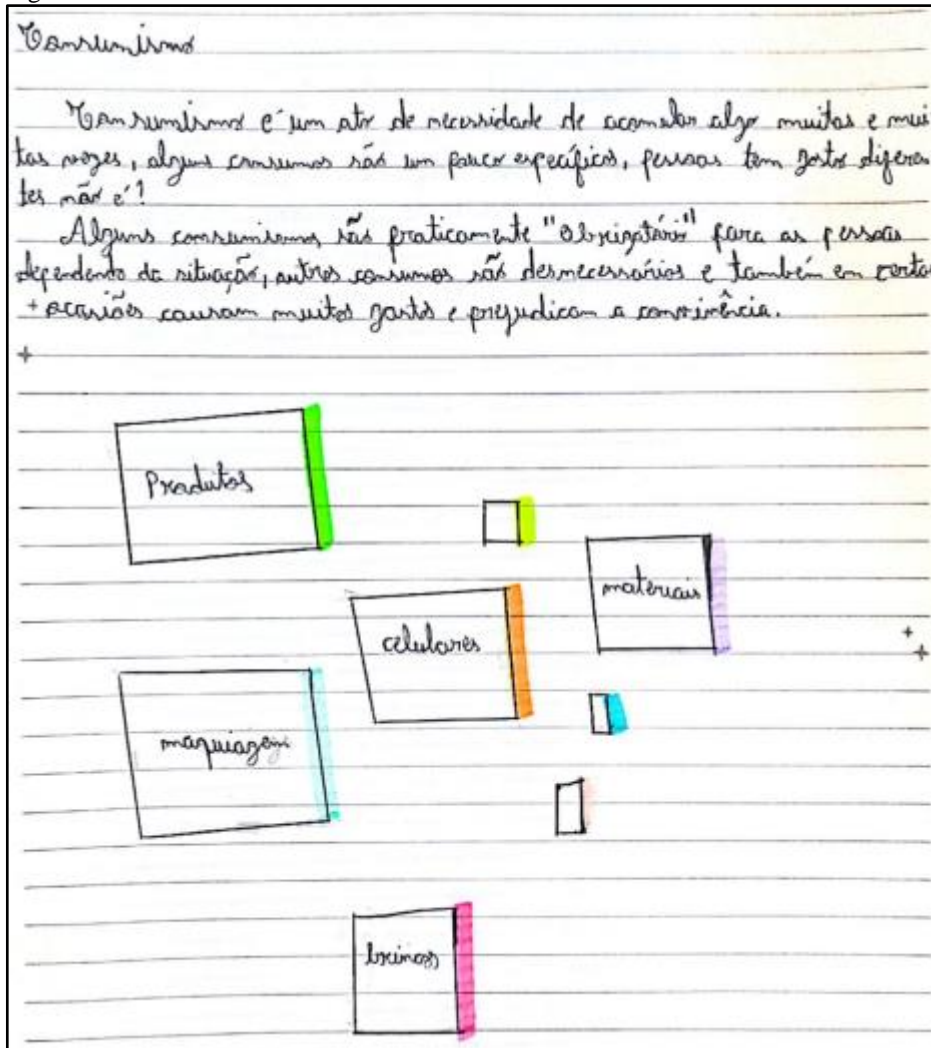 Consumismo
Consumismo é um ato de necessidade de acomular algo muitas e mui
tas vezes, alguns consumos são um pouco específicos, pessoas tem gostos diferen
tes não é?
Alguns consumismos são praticamente "obrigatório" para as pessoas
dependendo da situação, outros consumos são desnecessários e também em certas
ocasiões causam muitos gastos e prejudicam a convivência.
Produtos
materiais
celulares
maquiagem
brincos